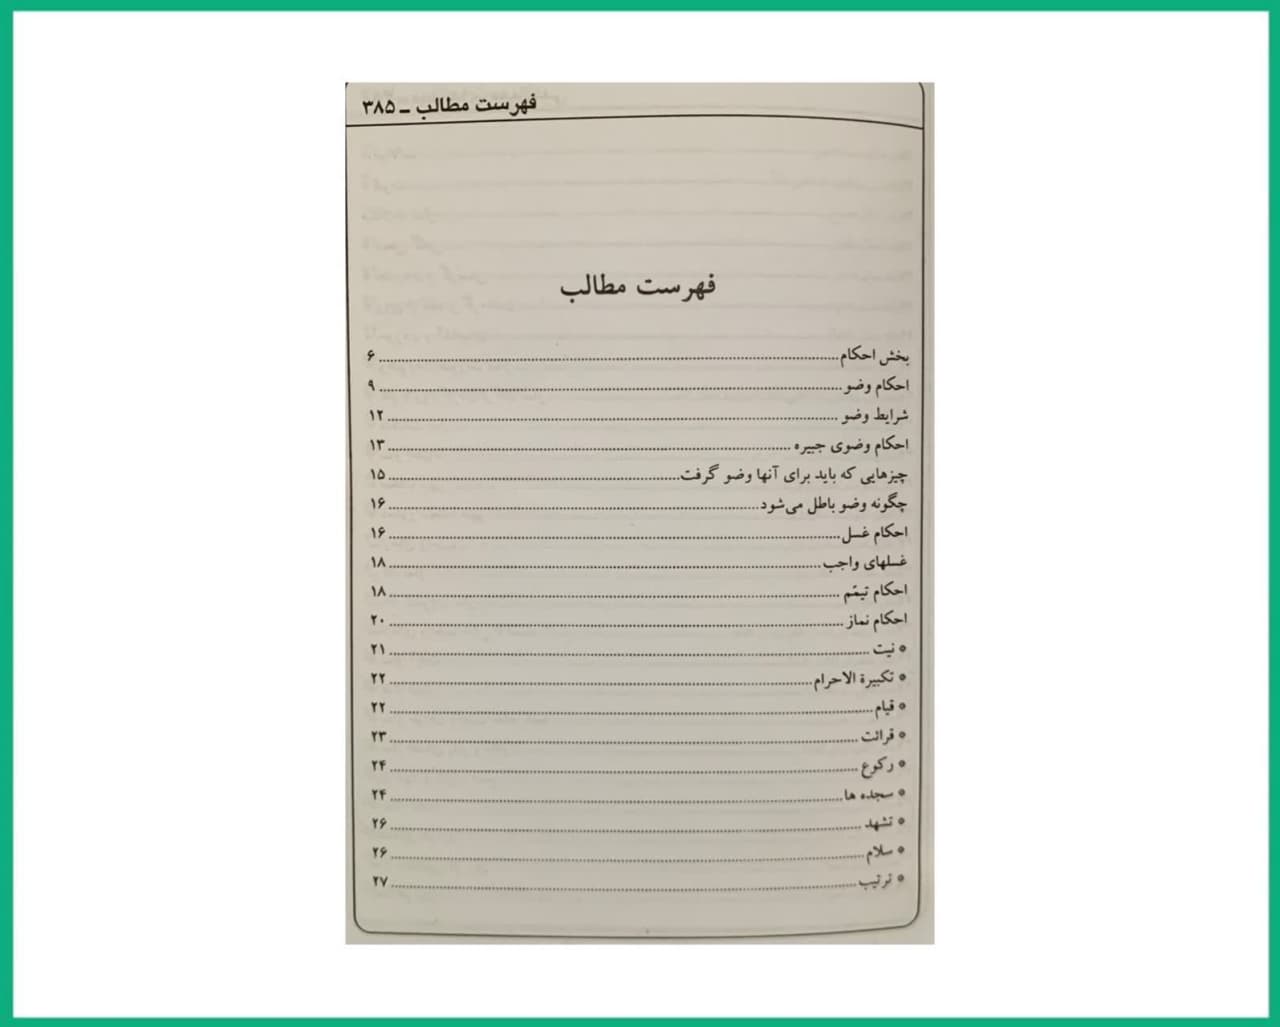 فهرست مطالب ـ ۳۸۵
فهرست مطالب
بخش احکام ........ ۶
احکام وضو ........ ۹
شرایط وضو ........ ۱۲
احکام وضوی جبیره ........ ۱۳
چیزهایی که باید برای آنها وضو گرفت ........ ۱۵
چگونه وضو باطل می‌شود ........ ۱۶
احکام غسل ........ ۱۶
غسلهای واجب ........ ۱۸
احکام تیمّم ........ ۱۸
احکام نماز ........ ۲۰
* نیت ........ ۲۱
* تکبیرة الاحرام ........ ۲۲
* قیام ........ ۲۲
* قرائت ........ ۲۳
* رکوع ........ ۲۴
* سجده ها ........ ۲۴
* تشهد ........ ۲۶
* سلام ........ ۲۶
* ترتیب ........ ۲۷